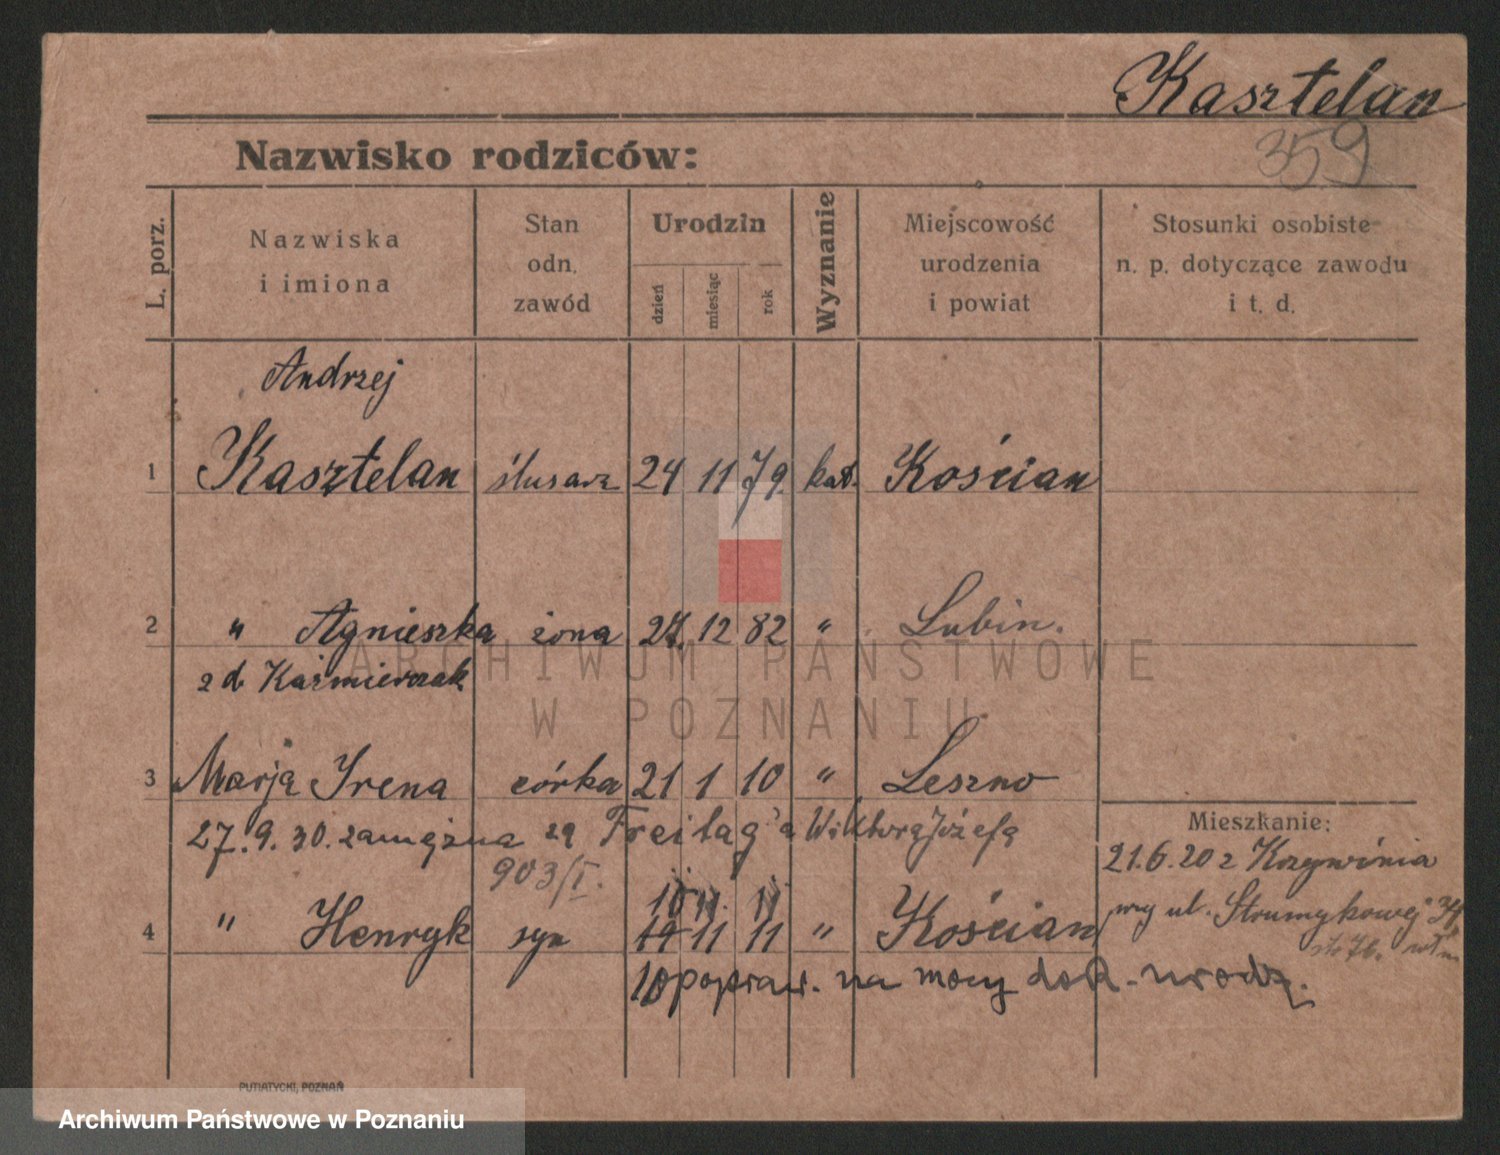 Kasztelan
359
Nazwisko rodziców:
L. porz.
Nazwiska
i imiona
Stan
odn.
zawód
Urodzin
dzień
miesiąc
rok
Wyznanie
Miejscowość
urodzenia
i powiat
Stosunki osobiste
n. p. dotyczące zawodu
i t. d.
Andrzej
1 Kasztelan ślusarz 24 11 79. kat. Kościan
2 " Agnieszka żona 27. 12 82 " Lubin.
z d. Kaźmierczak
ARCHIWUM PAŃSTWOWE
W POZNANIU
3 Marja Irena córka 21 1 10 " Leszno
27.9.30. zamężna za Freitag'a Wiktora Józefa
903/I.
Mieszkanie:
21.6.20 z Krzywinia
przy ul. Strumykowej 34
10 11. 11
4 " Henryk syn 19 11 11 " Kościan
10 popraw. na mocy dok. urodz.
PUTIATYCKI, POZNAŃ
Archiwum Państwowe w Poznaniu